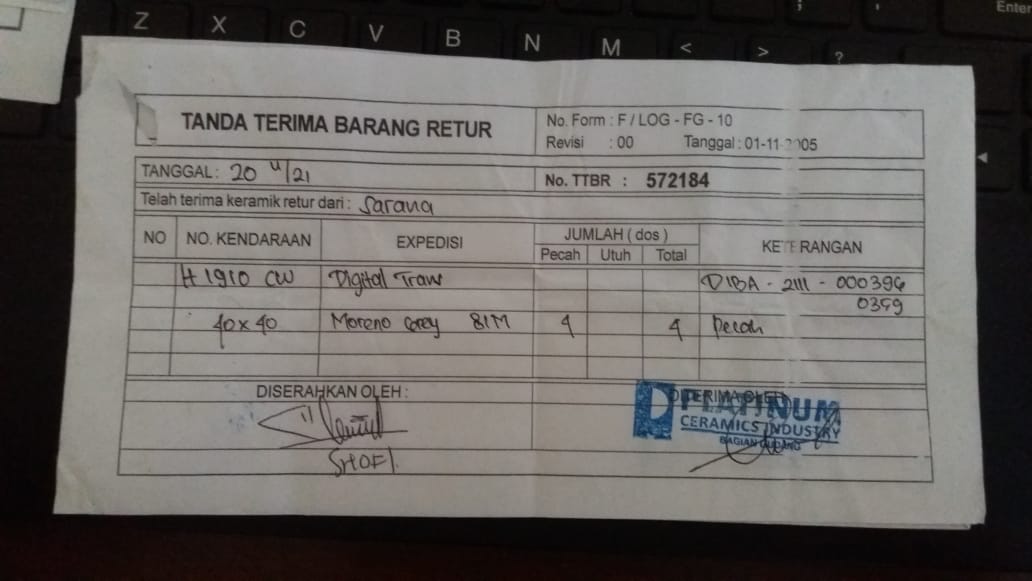 Z X C V B N M < > ?
Enter
TANDA TERIMA BARANG RETUR
No. Form : F / LOG - FG - 10
Revisi : 00 Tanggal : 01-11-2005
TANGGAL : 20 11/21
No. TTBR : 572184
Telah terima keramik retur dari : Sarana
NO NO. KENDARAAN EXPEDISI JUMLAH ( dos ) KETERANGAN
Pecah Utuh Total
H 1910 CW Digital Trans DIBA - 2111 - 000396
0399
40 x 40 Moreno Grey 81M 4 4 Pecah
DISERAHKAN OLEH : DITERIMA OLEH
PLATINUM
CERAMICS INDUSTRY
BAGIAN GUDANG
SHOFI